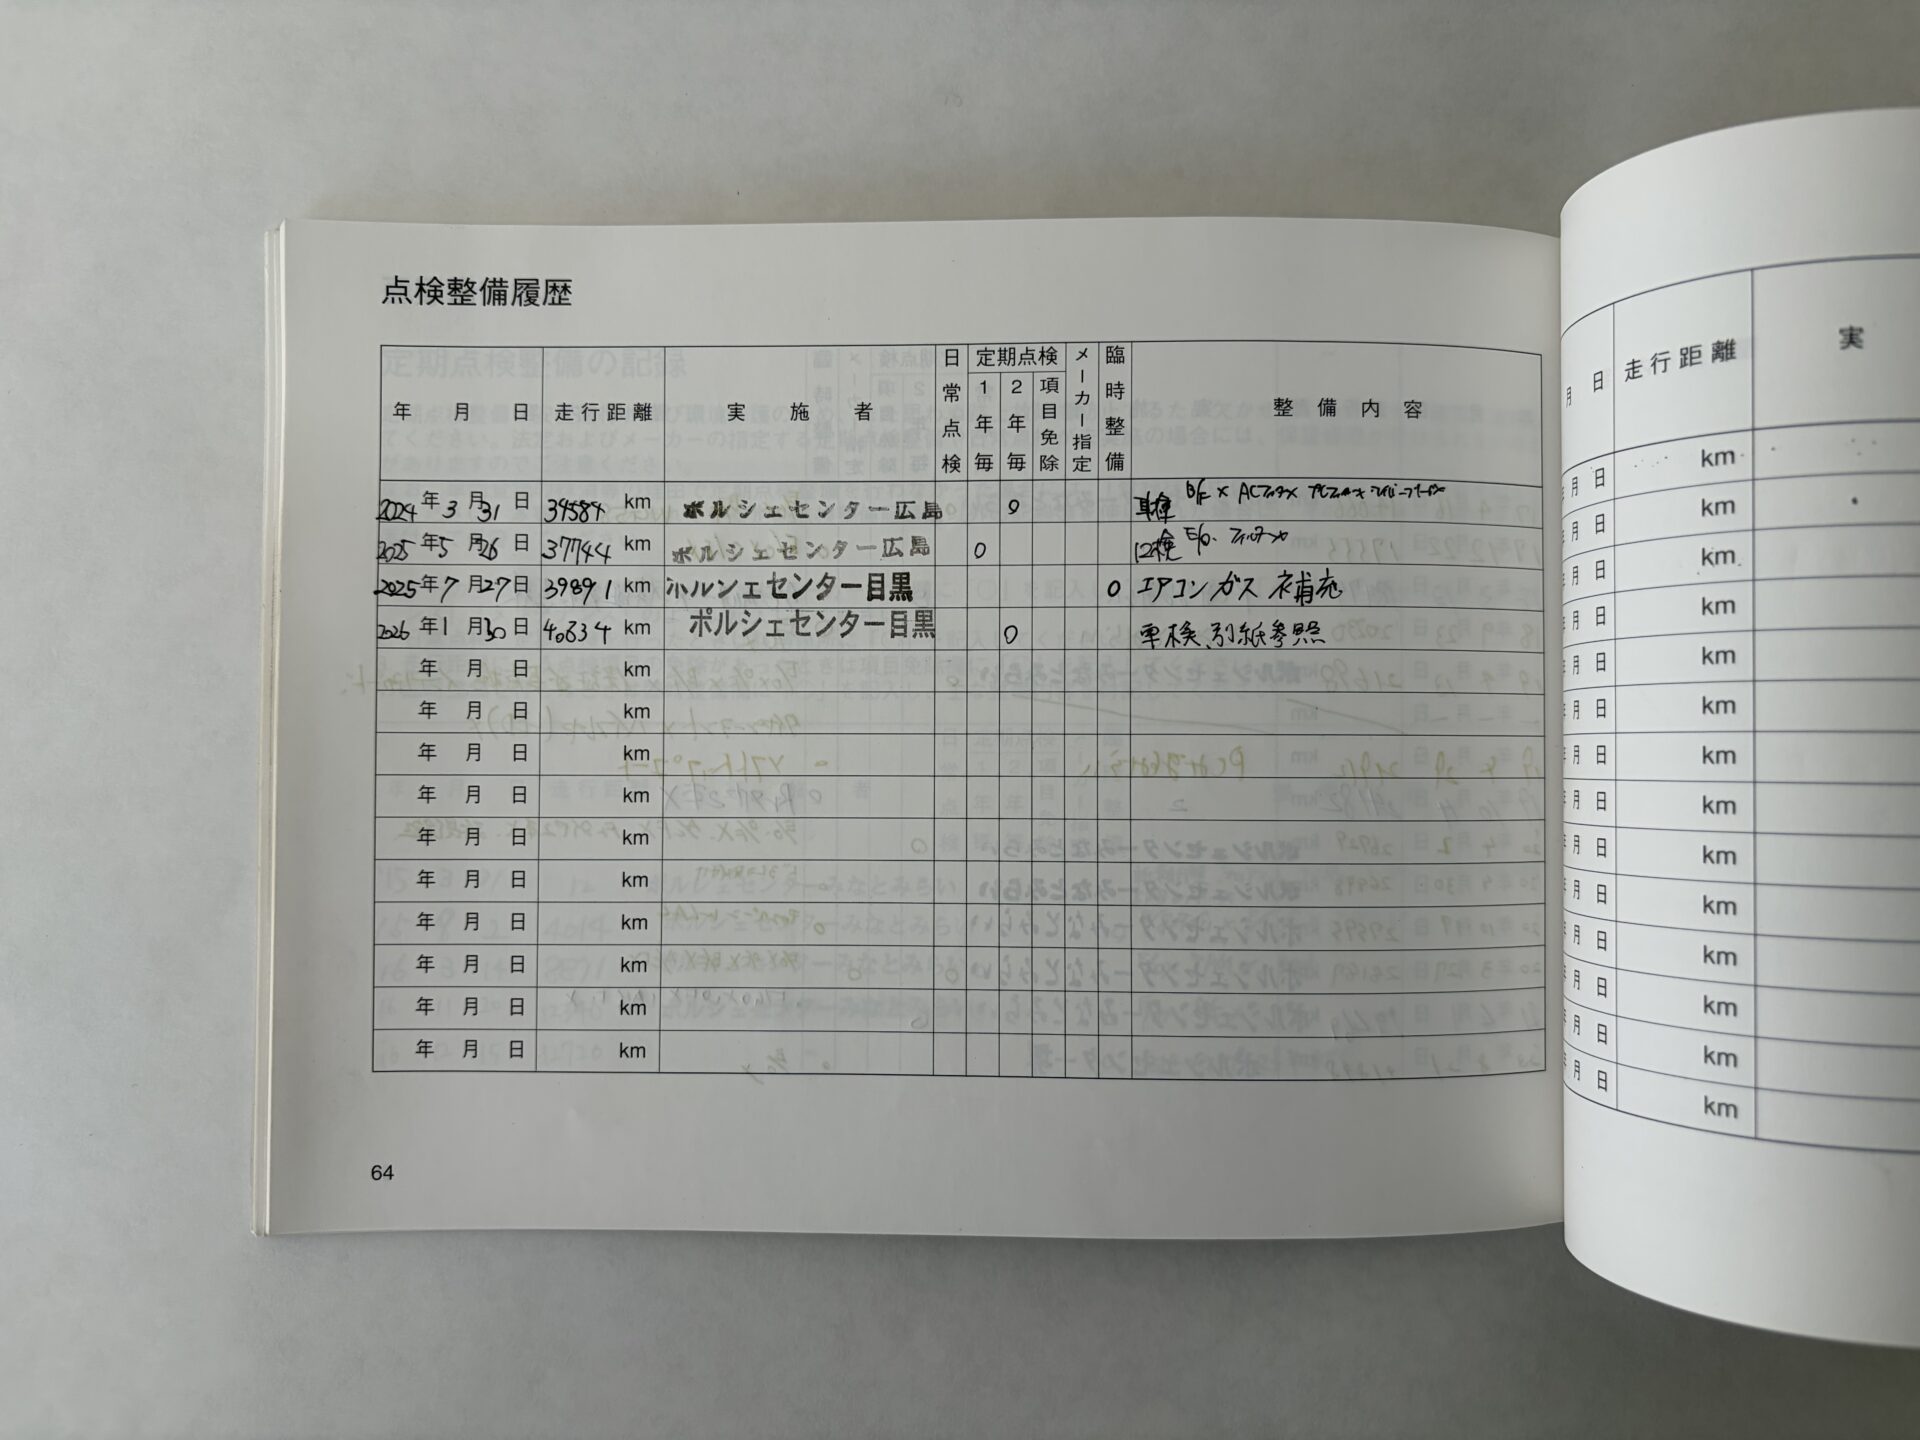 点検整備履歴
年 月 日 走行距離 実施者 日常点検 定期点検 1年毎 2年毎 項目免除 メーカー指定 臨時整備 整備内容
2024年3月31日 34584 km ポルシェセンター広島 ○ 車検 B/F× ACフィルタ×
2025年5月26日 37744 km ポルシェセンター広島 ○ 12検 E/O.
2025年7月27日 39891 km ポルシェセンター目黒 ○ エアコンガス補充
2026年1月30日 40834 km ポルシェセンター目黒 ○ 車検 別紙参照
年 月 日 km
年 月 日 km
年 月 日 km
年 月 日 km
年 月 日 km
年 月 日 km
年 月 日 km
年 月 日 km
年 月 日 km
年 月 日 km
64
月 日 走行距離 実
月 日 km
月 日 km
月 日 km
月 日 km
月 日 km
月 日 km
月 日 km
月 日 km
月 日 km
月 日 km
月 日 km
月 日 km
月 日 km
月 日 km